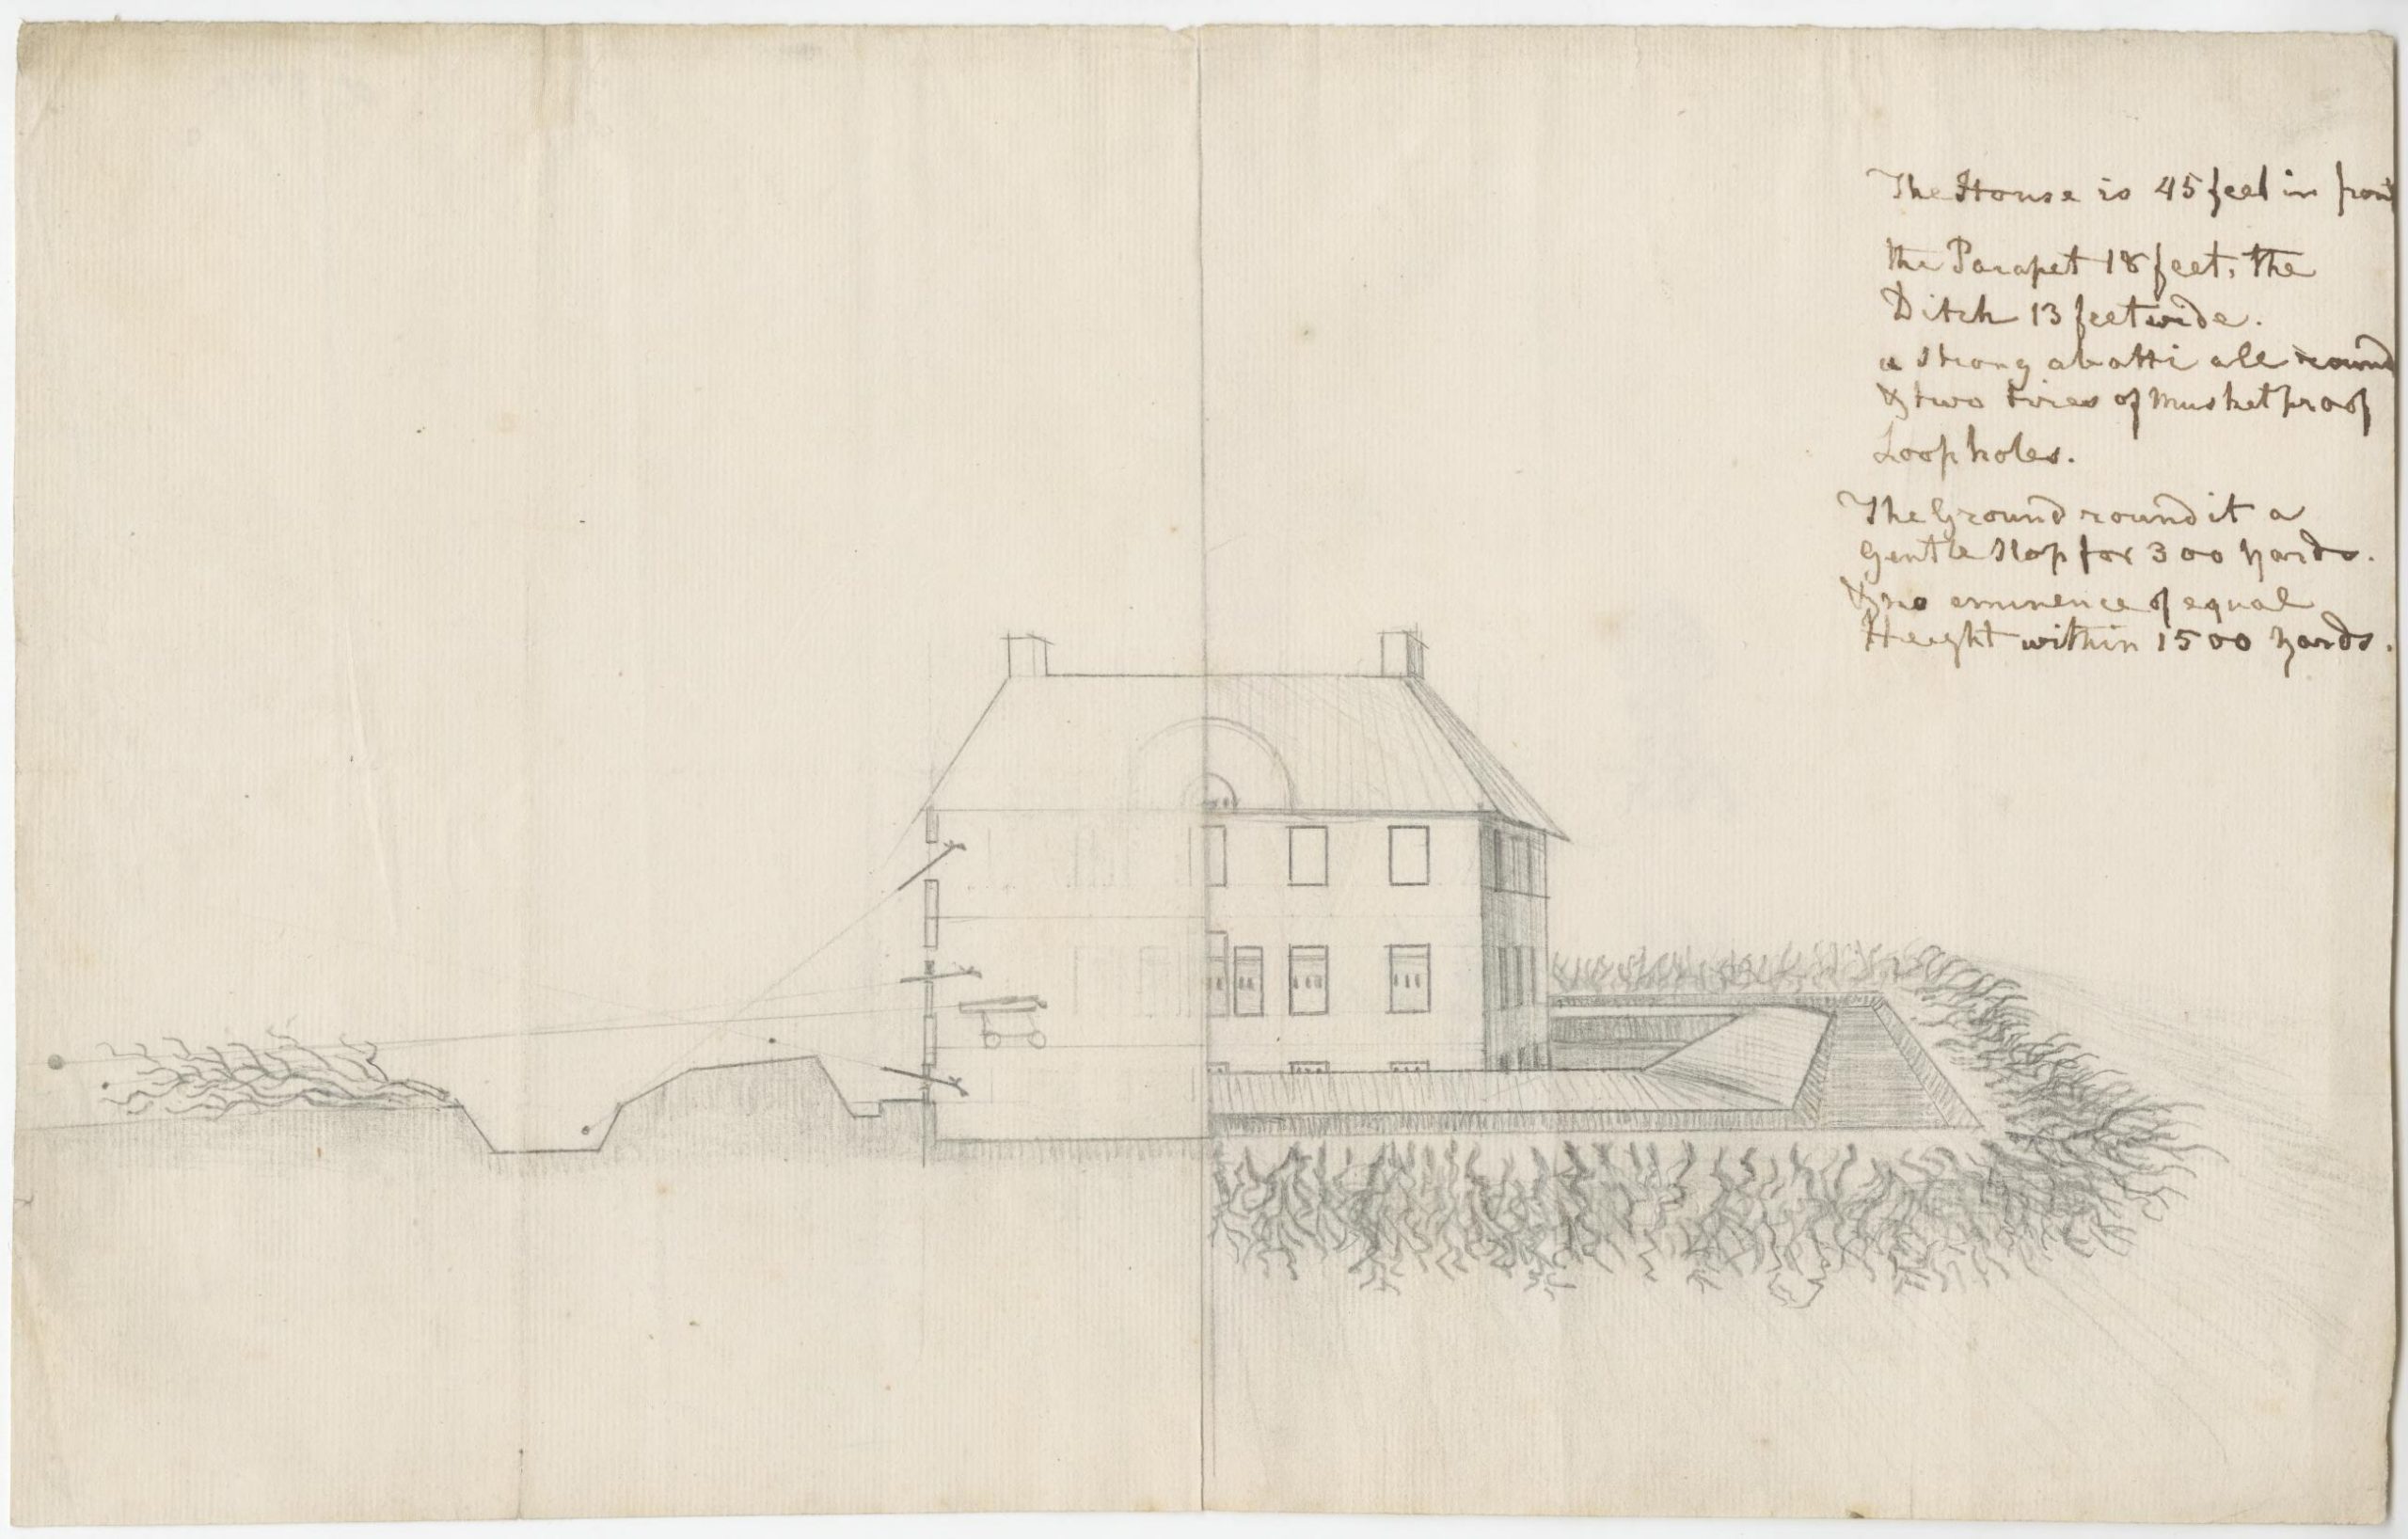 The House is 45 feet in front
the Parapet 18 feet, the
Ditch 13 feet wide.
a strong abatti all round
& two tires of Musket proof
Loopholes.
The Ground round it a
Gentle Slop for 300 yards.
& no eminence of equal
Height within 1500 yards.